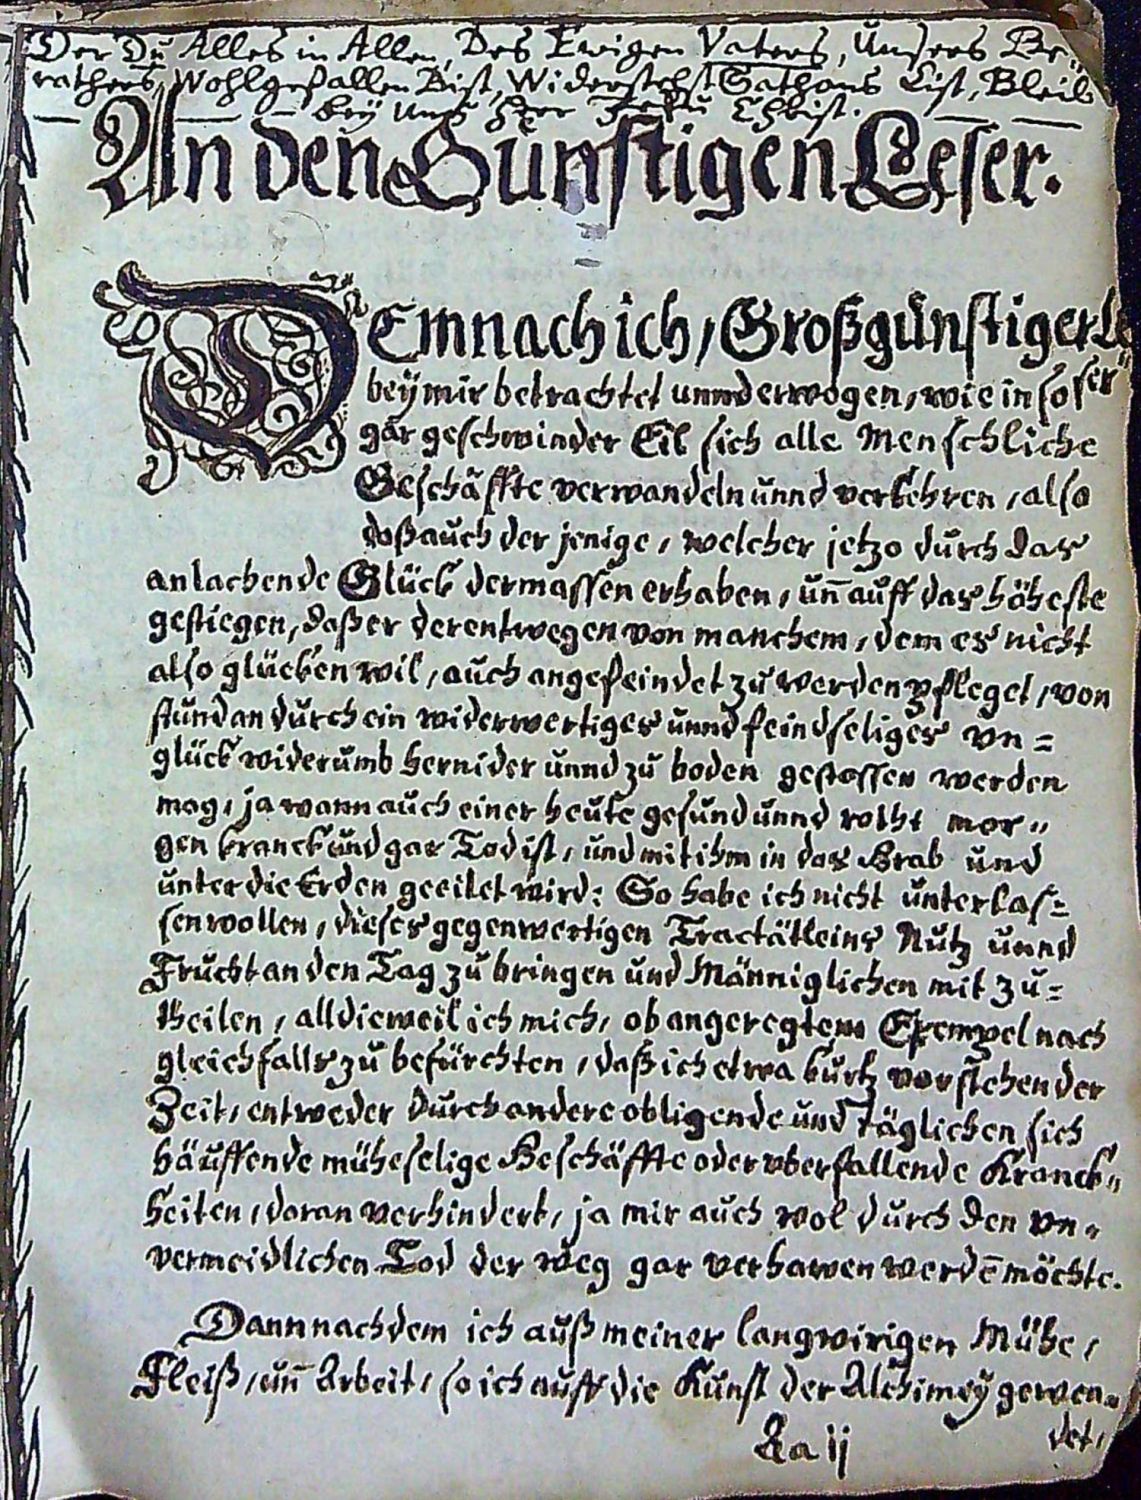 Der Du Alles in Allen, Des Ewigen Vaters, Unsers Be-
rathers, Wohlgefallen Bist, Widerstehst Sathans List, Bleib
bey uns Herr Jesu Christ.
An den Günstigen Leser.
DEmnach ich / Großgünstiger Le
ser
bey mir betrachtet unnd erwogen, wie in so
gar geschwinder Eil sich alle Menschliche
Geschäffte verwandeln unnd verkehren / also
daß auch der jenige / welcher jetzo durch das
anlachende Glück dermassen erhaben / uñ auff das höheste
gestiegen, daß er derentwegen von manchem / dem es nicht
also glücken wil / auch angefeindet zu werden pfleget / von
stund an durch ein widerwertiges unnd feindseliges vn=
glück widerumb hernider unnd zu boden gestossen werden
mag / ja wann auch einer heute gesund unnd roht mor=
gen kranck und gar Tod ist / und mit ihm in das Grab und
unter die Erden geeilet wird: So habe ich nicht unterlas=
sen wollen / dieses gegenwertigen Tractätleins Nutz unnd
Frucht an den Tag zu bringen und Männiglichen mit zu=
theilen / alldieweil ich mich / ob angeregtem Exempel nach
gleichfalls zu befürchten / daß ich etwa kurtz vorstehender
Zeit / entweder durch andere obligende und Täglichen sich
häuffende müheselige Geschäffte oder vberfallende Kranck=
heiten / daran verhindert / ja mir auch wol durch den vn=
vermeidlichen Tod der weg gar verhawen werdē möchte.
Dann nachdem ich auß meiner langwirigen Mühe /
Fleiß / uñ Arbeit / so ich auff die Kunst der Alchimey gewen=
Aa ij
det /